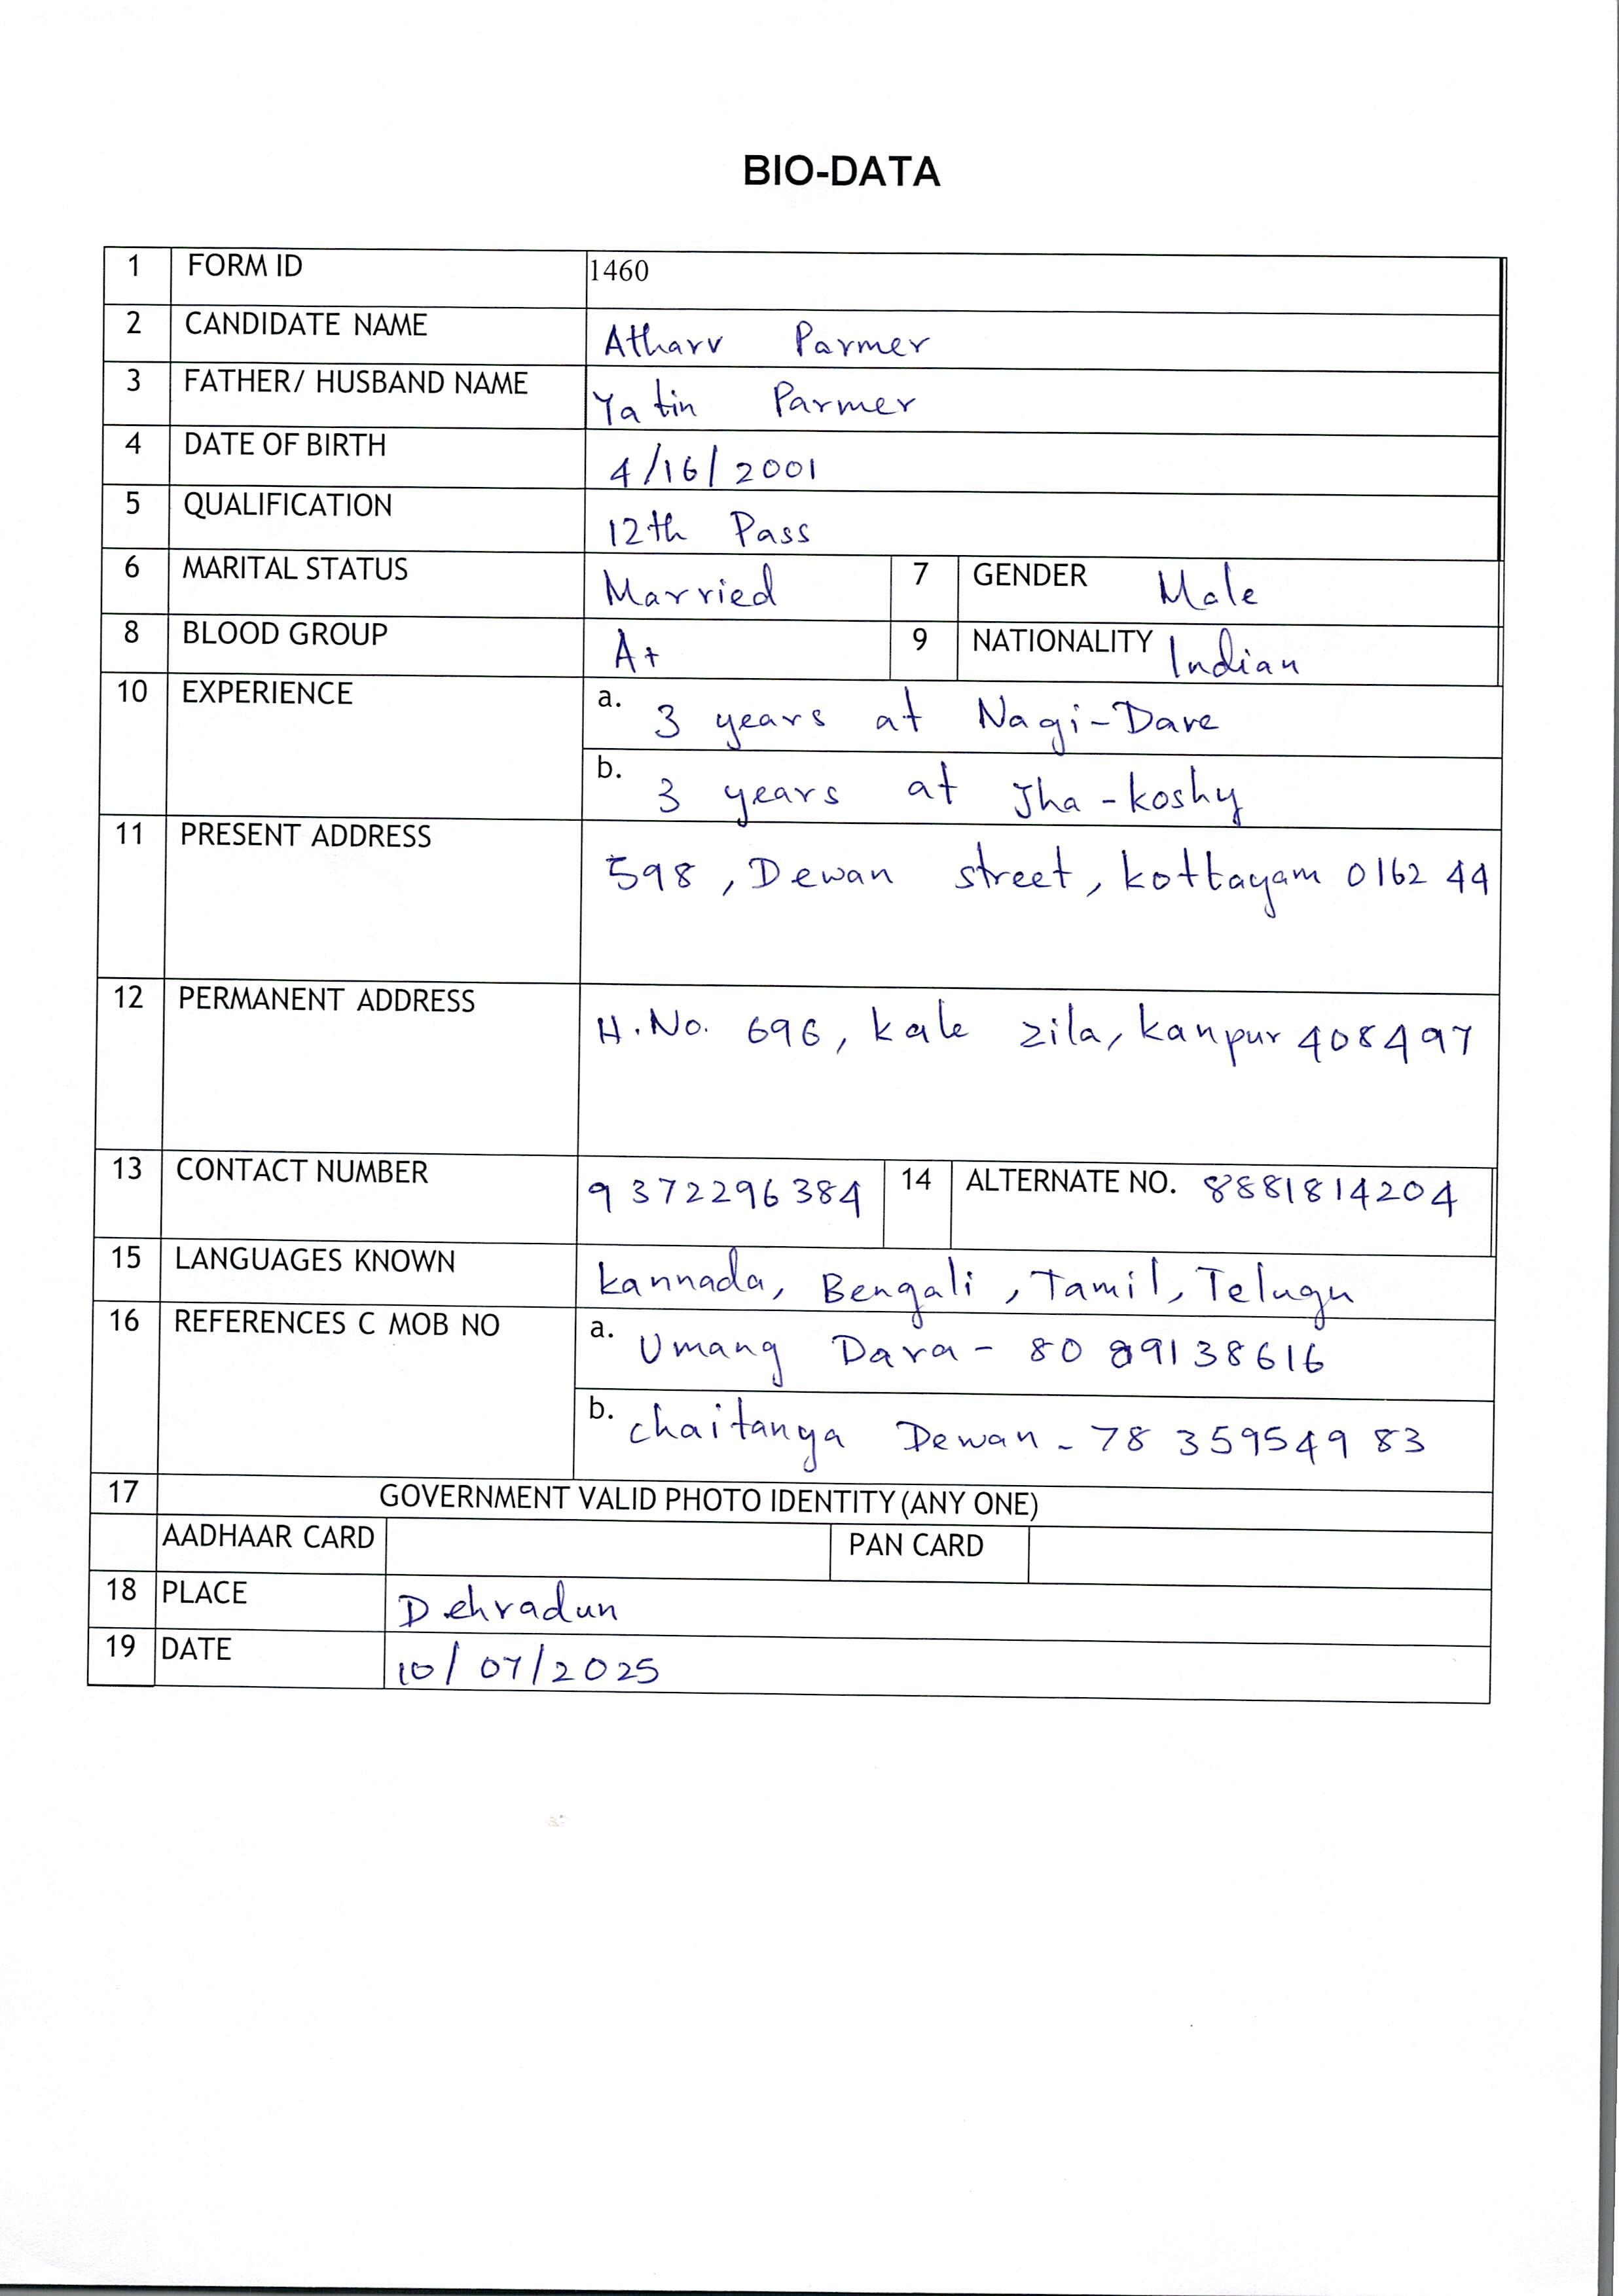 BIO-DATA
1 FORM ID 1460
2 CANDIDATE NAME Atharv Parmer
3 FATHER/ HUSBAND NAME Yatin Parmer
4 DATE OF BIRTH 4/16/2001
5 QUALIFICATION 12th Pass
6 MARITAL STATUS Married 7 GENDER Male
8 BLOOD GROUP A+ 9 NATIONALITY Indian
10 EXPERIENCE a. 3 years at Nagi-Dave
b. 3 years at Jha-koshy
11 PRESENT ADDRESS 598, Dewan street, kottayam 0162 44
12 PERMANENT ADDRESS H.No. 696, kale zila, kanpur 408497
13 CONTACT NUMBER 9372296384 14 ALTERNATE NO. 8881814204
15 LANGUAGES KNOWN kannada, Bengali, Tamil, Telugu
16 REFERENCES C MOB NO a. Umang Dara - 80 89138616
b. chaitanya Dewan - 78 359549 83
17 GOVERNMENT VALID PHOTO IDENTITY (ANY ONE)
AADHAAR CARD PAN CARD
18 PLACE Dehradun
19 DATE 10/07/2025